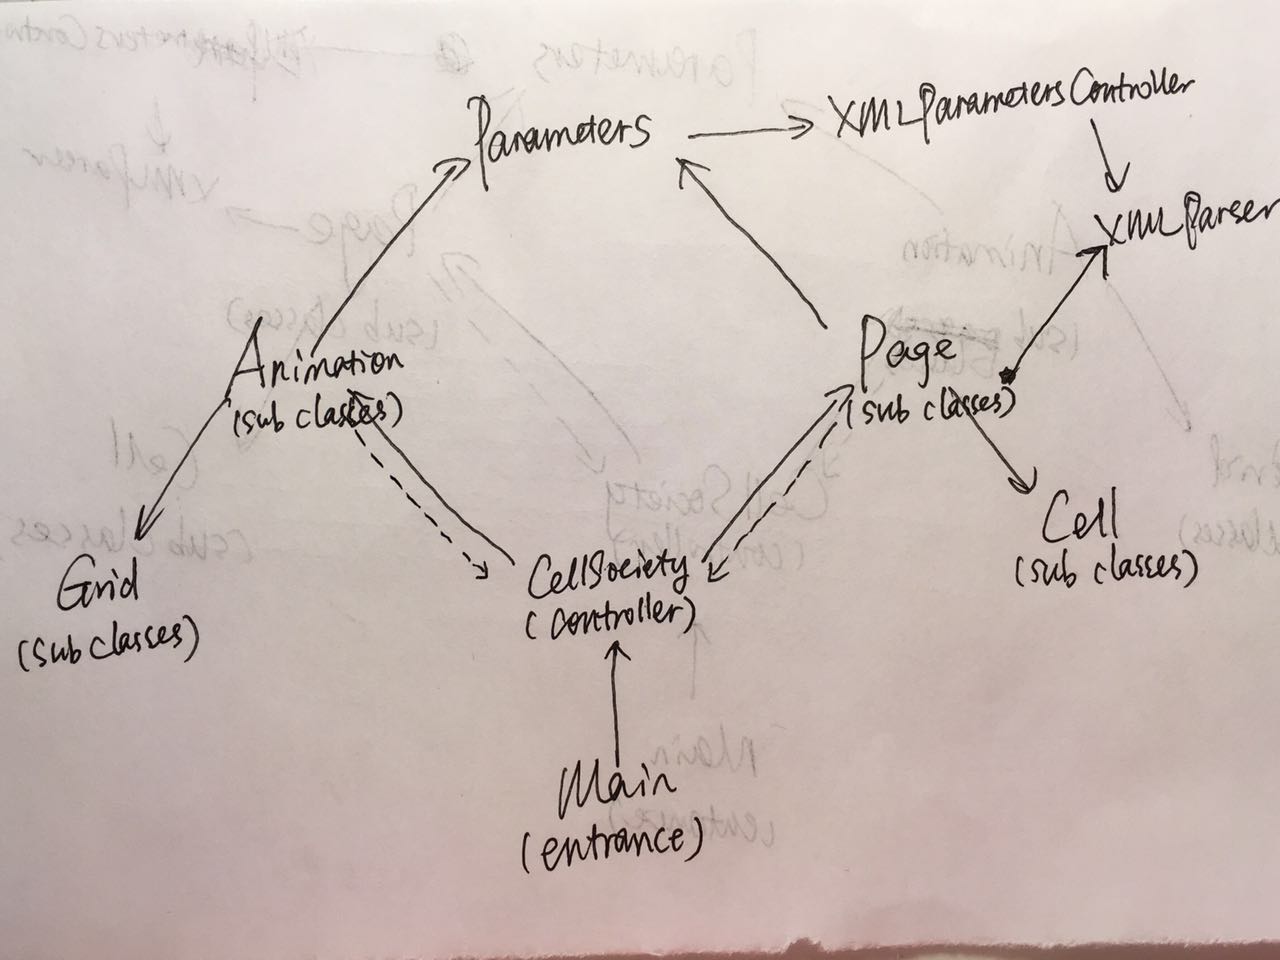 Parameters
XMLParametersController
XMLParser
Animation
(sub classes)
Page
(sub classes)
Grid
(sub classes)
CellSociety
(controller)
Cell
(sub classes)
Main
(entrance)